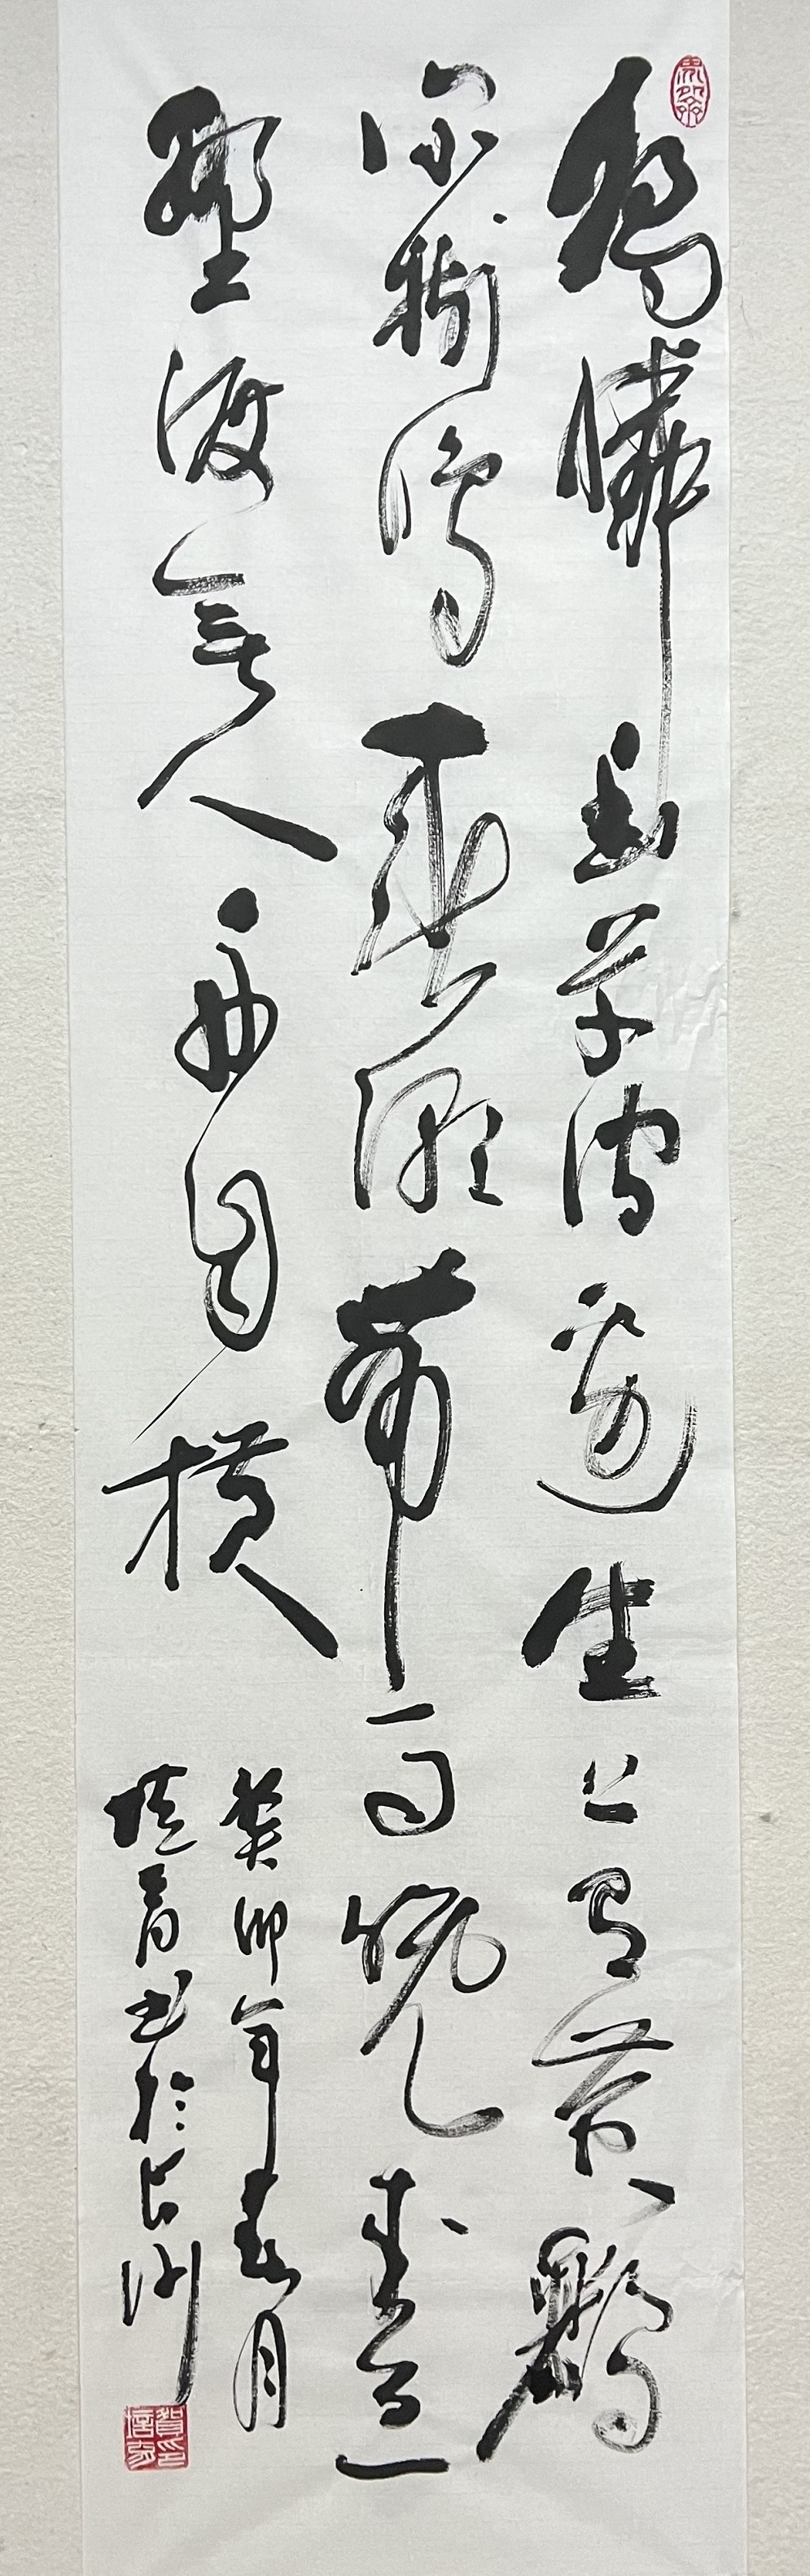 獨憐幽草澗邊生上有黃鸝
深樹鳴春潮帶雨晚來急
野渡無人舟自橫
癸卯年春月
培育書於長沙